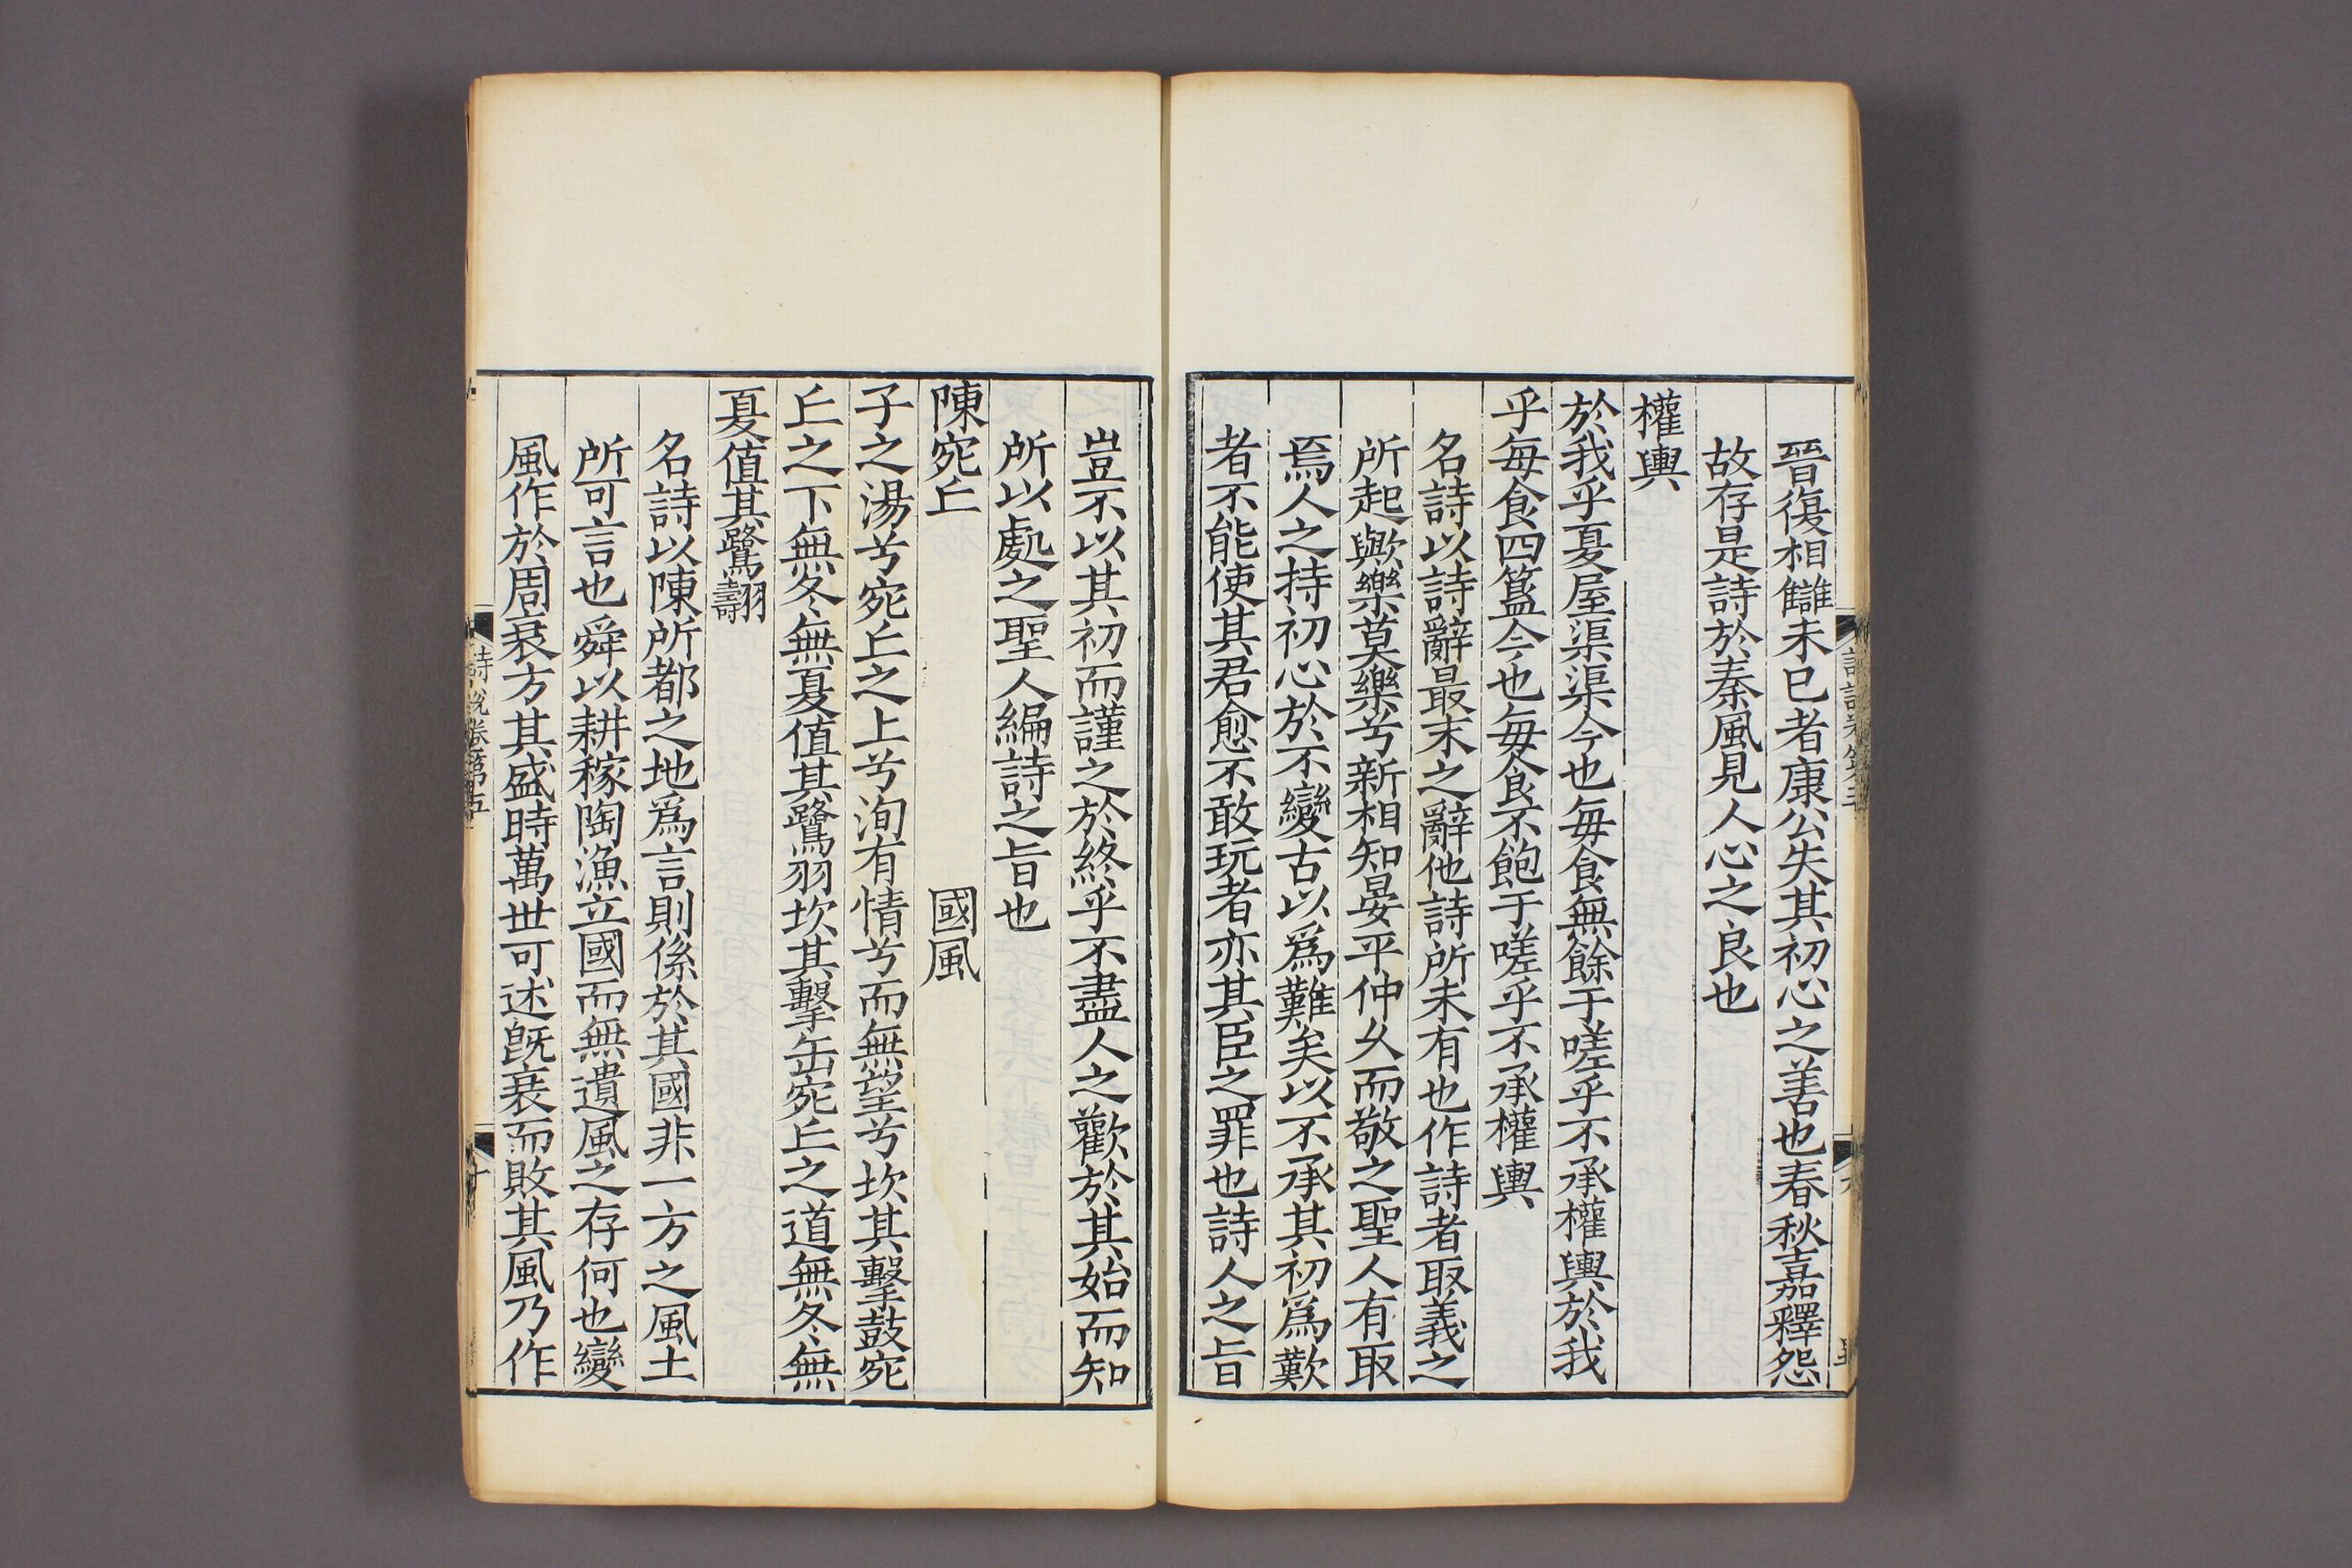 晉復相讎未已者康公失其初心之善也春秋嘉釋怨
故存是詩於秦風見人心之良也
權輿
於我乎夏屋渠渠今也每食無餘于嗟乎不承權輿於我
乎每食四簋今也每食不飽于嗟乎不承權輿
名詩以詩辭最末之辭他詩所未有也作詩者取義之
所起歟樂莫樂兮新相知晏平仲久而敬之聖人有取
焉人之持初心於不變古以爲難矣以不承其初爲歎
者不能使其君愈不敢玩者亦其臣之罪也詩人之旨
豈不以其初而謹之於終乎不盡人之歡於其始而知
所以處之聖人編詩之旨也
陳宛丘 國風
子之湯兮宛丘之上兮洵有情兮而無望兮坎其擊鼓宛
丘之下無冬無夏值其鷺羽坎其擊缶宛丘之道無冬無
夏值其鷺翿
名詩以陳所都之地爲言則係於其國非一方之風土
所可言也舜以耕稼陶漁立國而無遺風之存何也變
風作於周衰方其盛時萬世可述旣衰而敗其風乃作
詩說卷第五
十